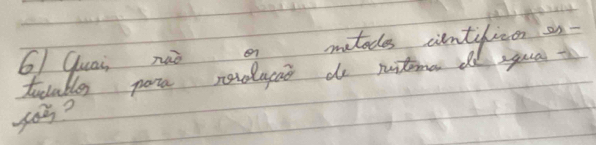 6) Quais não os metodos cientificos es-
tudados para resolução de sistema de equa-
ções?